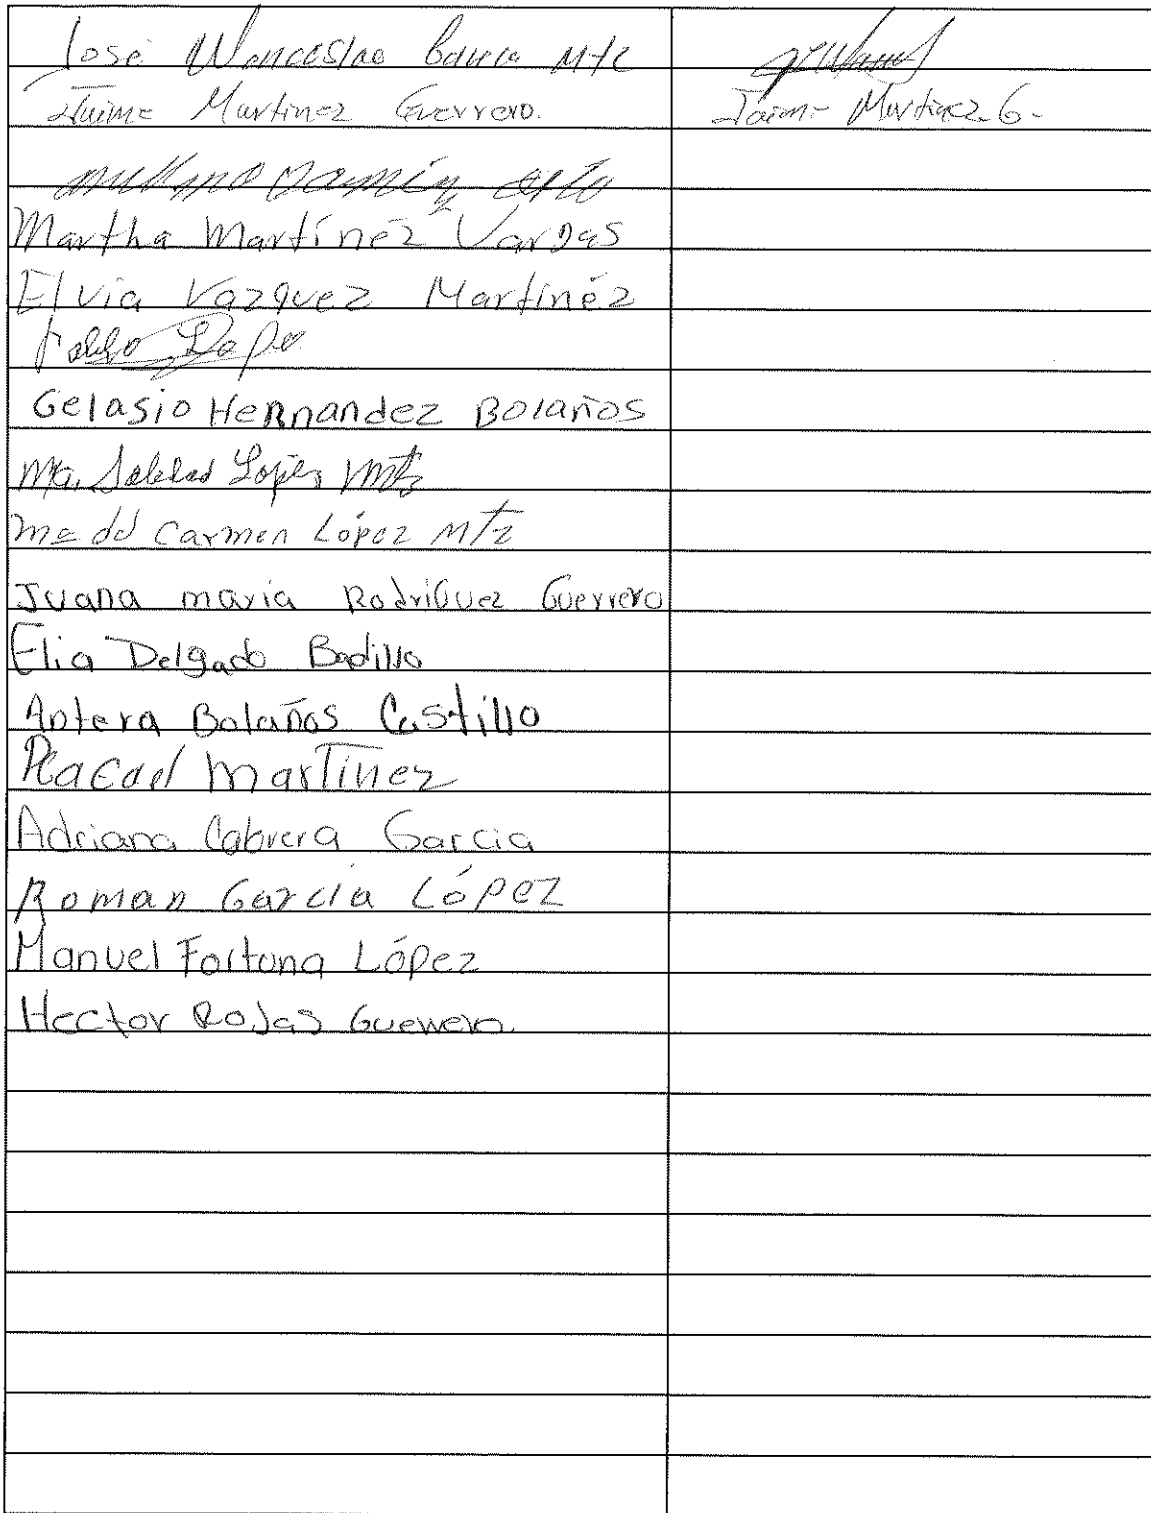 José Wenceslao Mtz
Jaime Martinez Guerrero. Jaime Martinez G.
Martha Martínéz Vargas
Elvia Vazquez Martinéz
Pablo
Gelasio Hernandez Bolaños
Ma. Soledad López Mtz
Ma del Carmen López Mtz
Juana maria RodriGuez Guerrero
Elia Delgado Badillo
Antera Bolaños Castillo
Martinez
Adriana Cabrera Garcia
Roman García LóPEZ
Manuel Fortuna López
Hector Rojas Guerrero.